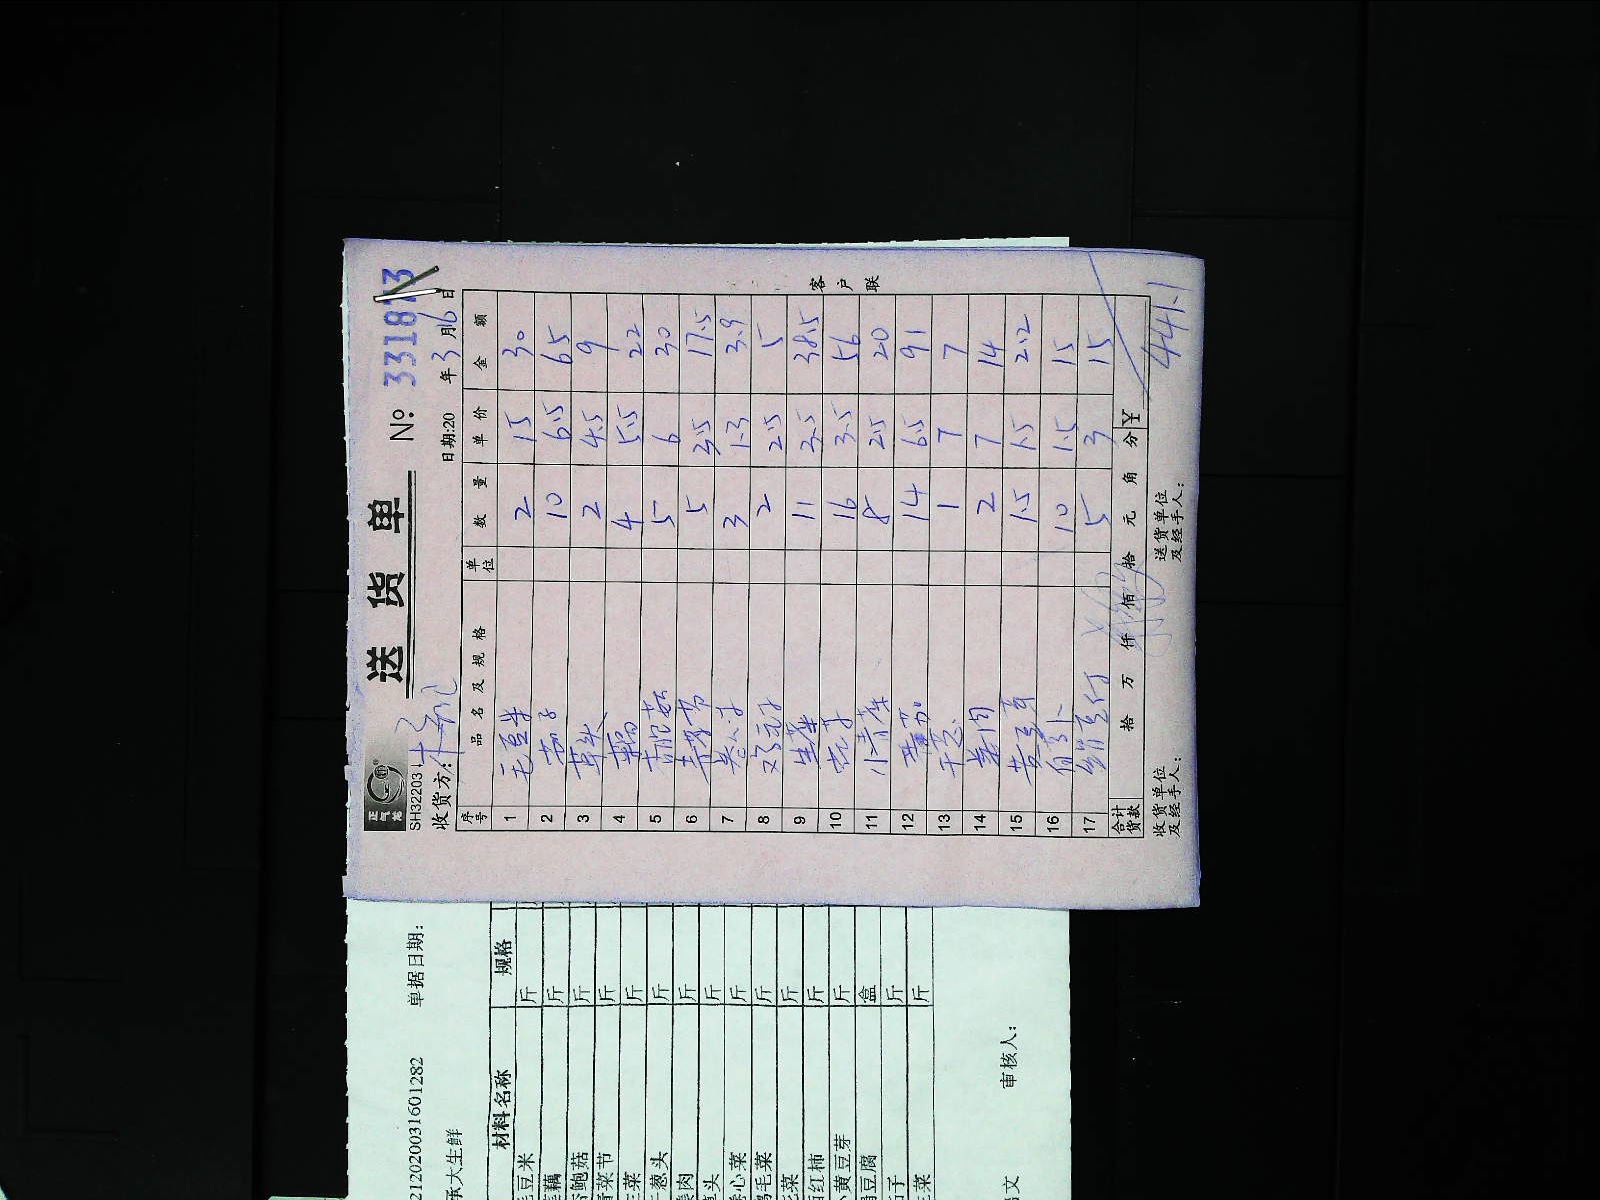 正气龙
SH32203
送货单
No: 331873
收货方:
日期:20 年 3 月 16 日
序号 品名及规格 单位 数量 单价 金额
1 毛豆米 2 15 30
2 茄子 10 6.5 65
3 草头 2 4.5 9
4 藕 4 5.5 22
5 杏鲍菇 5 6 30
6 青菜节 5 3.5 17.5
7 卷心菜 3 1.3 3.9
8 鸡毛菜 2 2.5 5
9 生菜 11 3.5 38.5
10 16 3.5 56
11 小青菜 8 2.5 20
12 14 6.5 91
13 干葱 1 7 7
14 姜肉 2 7 14
15 黄豆芽 1.5 1.5 2.2
16 白萝卜 10 1.5 15
17 5 3 15
合计货款 拾 万 仟 佰 拾 元 角 分 ¥ 441.1
收货单位及经手人:
送货单位及经手人:
客户联
212020031601282
单据日期:
承大生鲜
材料名称 规格
毛豆米 斤
莲藕 斤
杏鲍菇 斤
青菜节 斤
生菜 斤
干葱头 斤
姜肉 斤
草头 斤
卷心菜 斤
鸡毛菜 斤
花菜 斤
西红柿 斤
小黄豆芽 斤
豆腐 盒
茄子 斤
菜 斤
文
审核人: